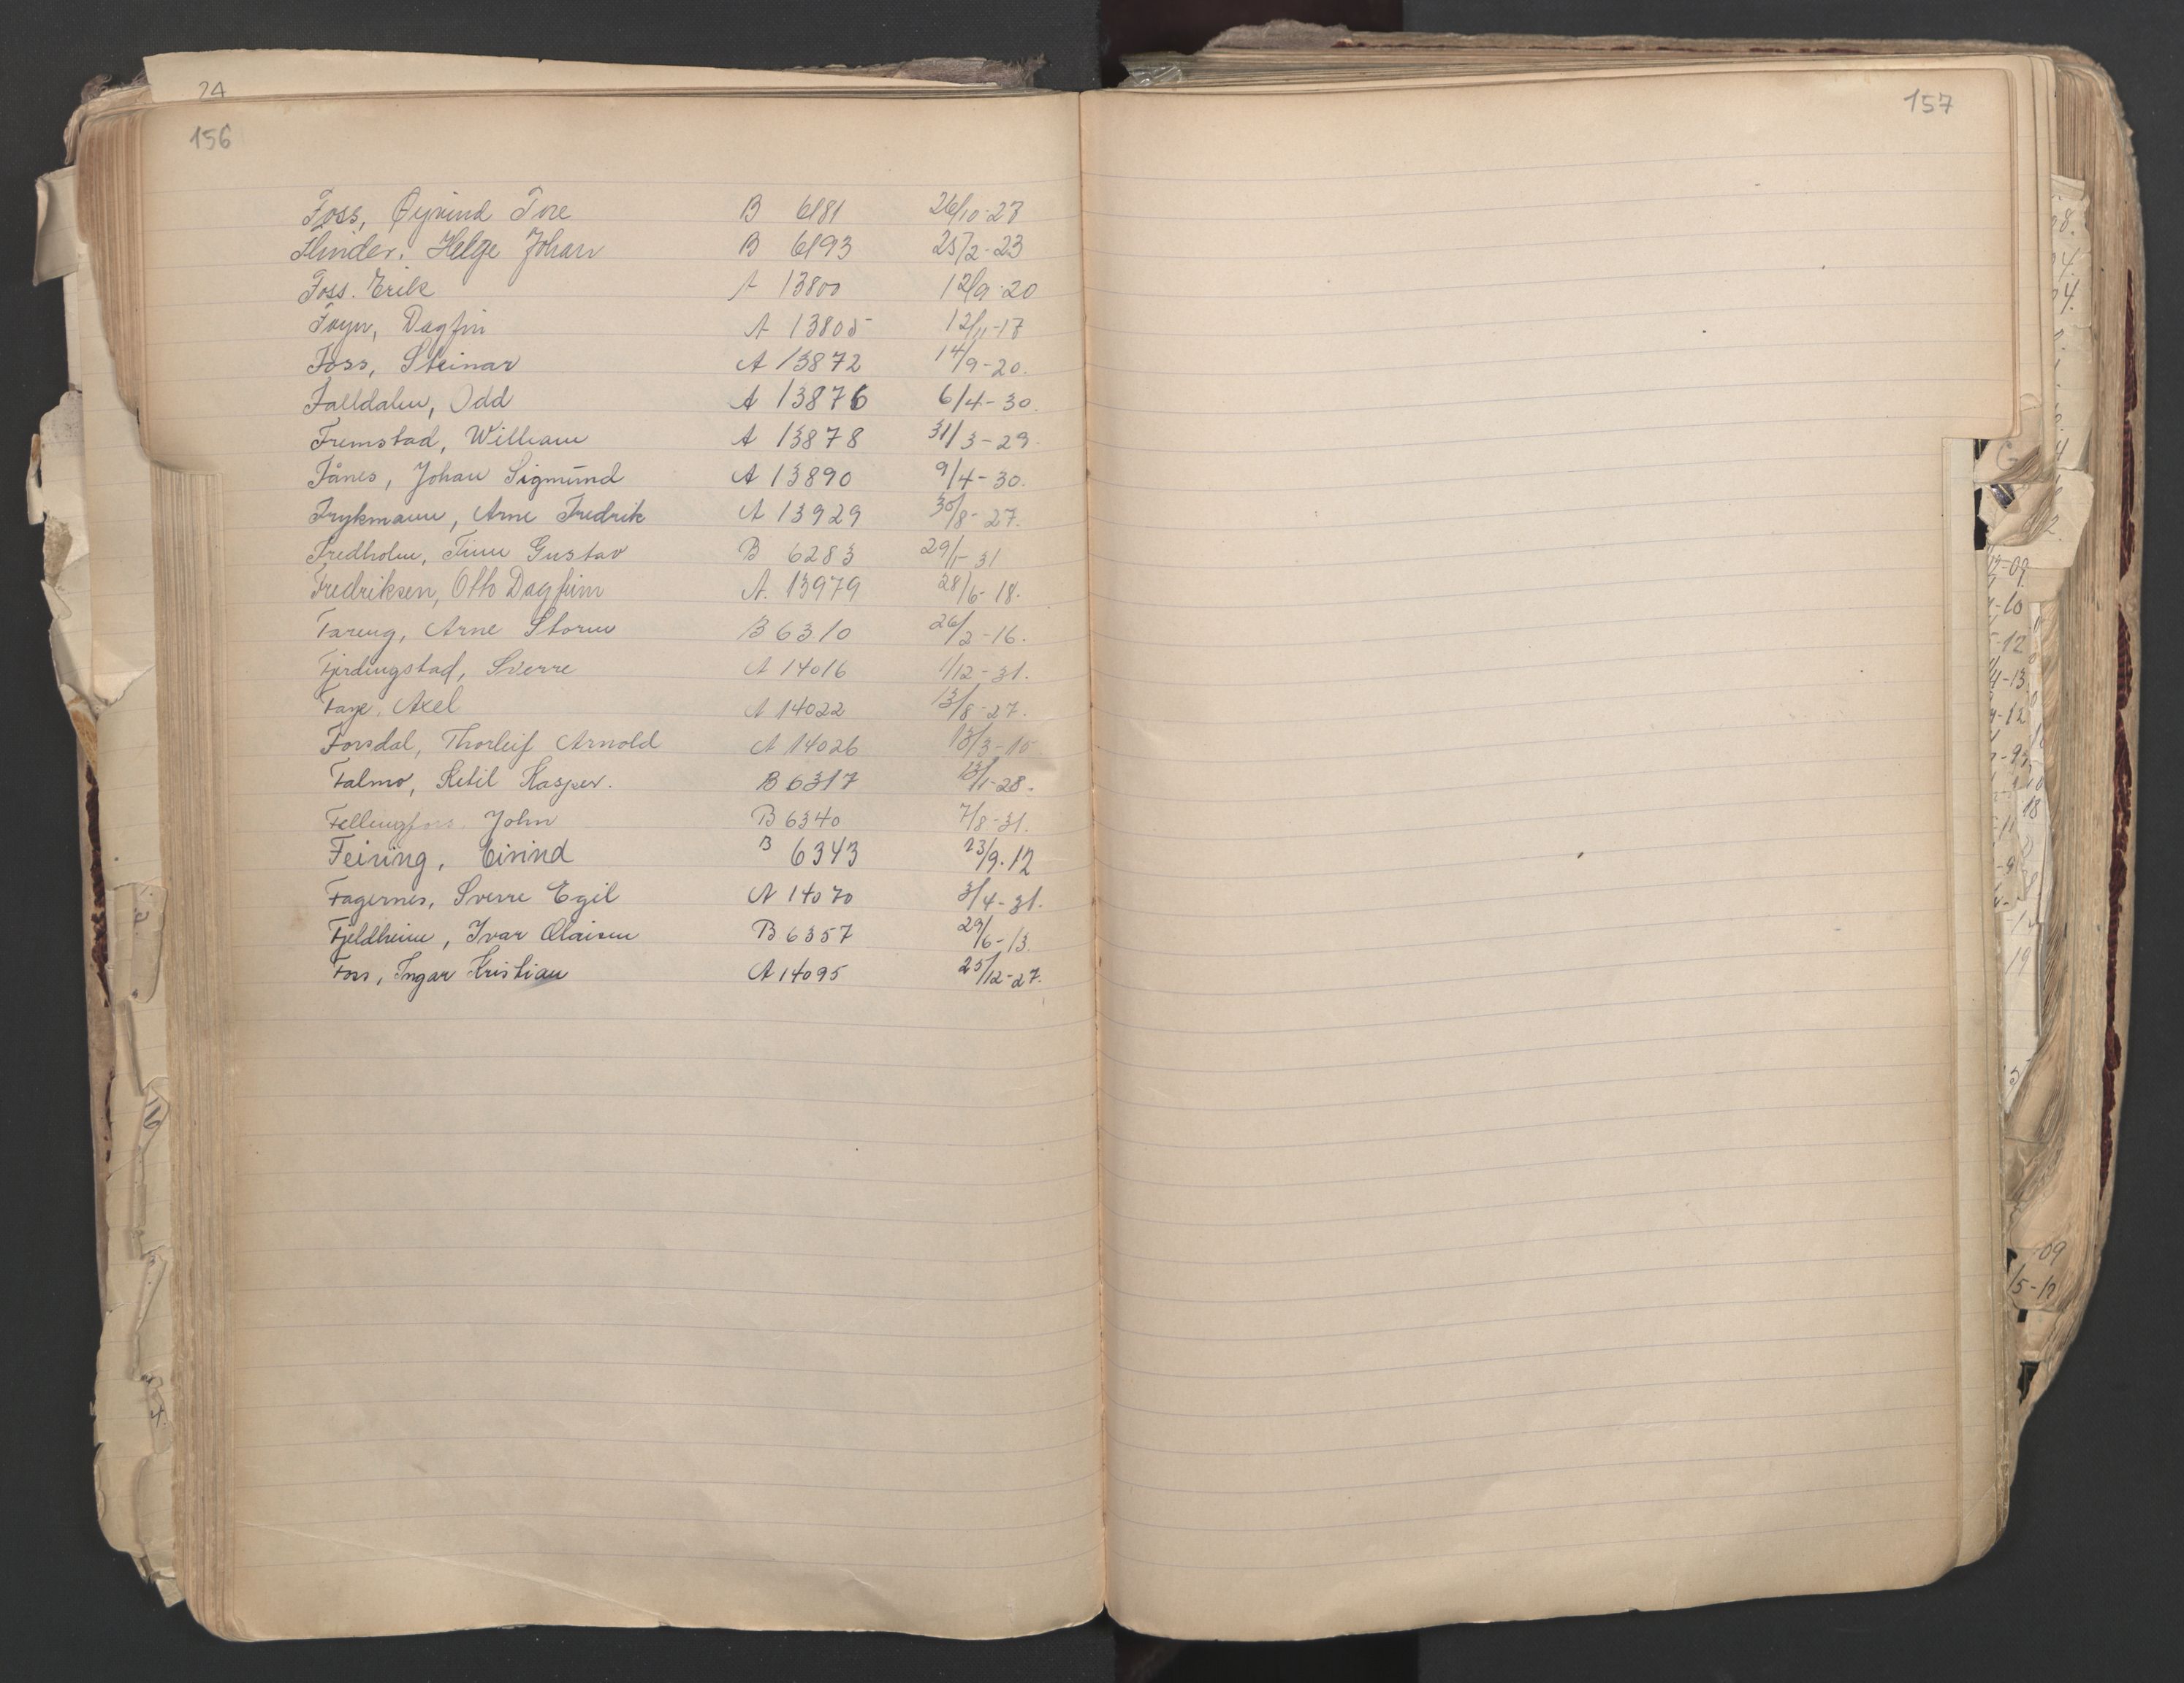 24
156
157
Foss, Øyvind Tore B 6181 26/10-27
Flinder, Helge Johan B 6193 25/2-23
Foss. Erik A 13800 12/9-20
Foyn, Dagfin A 13805 12/11-17
Foss, Steinar A 13872 14/9-20.
Falldalen, Odd A 13876 6/4-30.
Fremstad, William A 13878 31/3-29.
Fånes, Johan Sigmund A 13890 9/4-30.
Frykmann, Arne Fredrik A 13929 30/8-27.
Fredholm, Finn Gustav B 6283 29/1-31
Fredriksen, Otto Dagfinn A. 13979 28/6-18.
Fareng, Arne Storm B 6310 26/2-16.
Fjerdingstad, Sverre A 14016 1/12-31.
Faye, Axel A 14022 13/8-27.
Forsdal, Thorleif Arnold A 14026 13/3-15
Falmo, Ketil Kasper. B 6317 13/1-28.
Fellingfors, John B 6340 7/8-31.
Feiring, Eivind B 6343 23/9.12
Fagernes, Sverre Egil A 14070 3/4-31.
Fjeldheim, Ivar Olaisen B 6357 29/6-13.
Foss, Ingar Kristian A 14095 25/12-27.